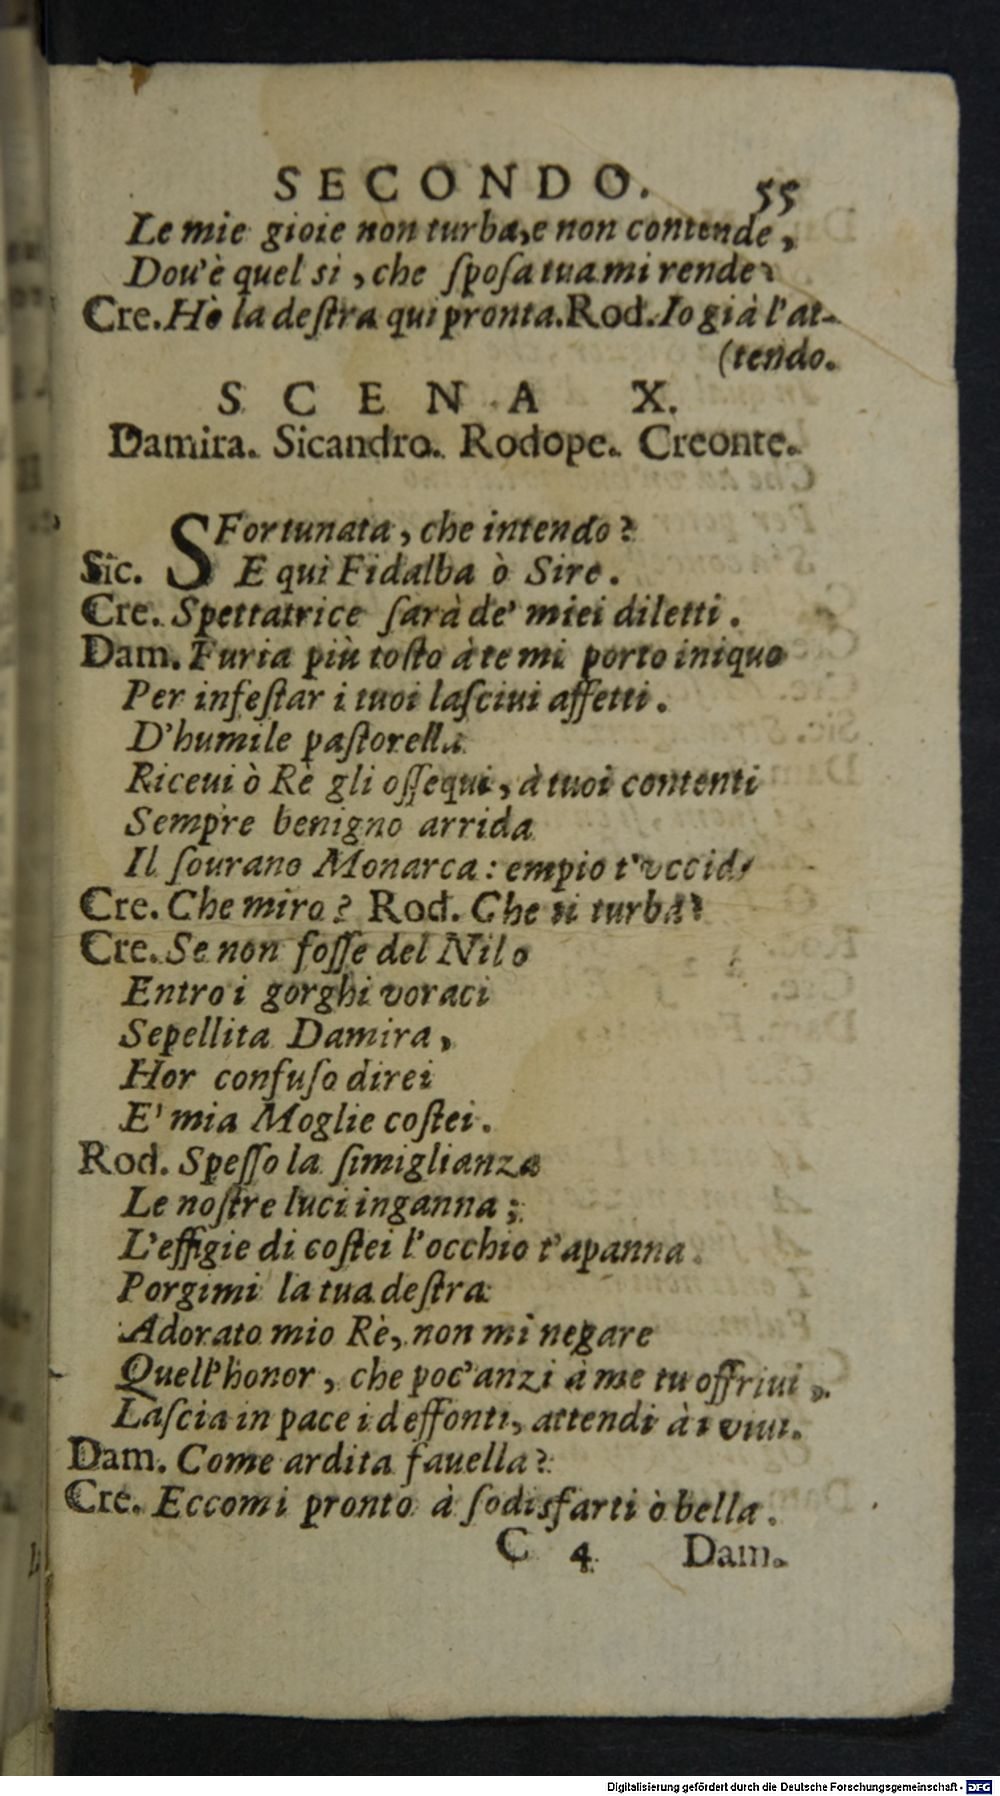 SECONDO. 55
Le mie gioie non turba, e non contende,
Dou'è quel si, che ſpoſa tua mi rende?
Cre. Hò la deſtra qui pronta. Rod. Io già l'at-
(tendo.
SCENA X.
Damira. Sicandro. Rodope. Creonte.
SFortunata, che intendo?
Sic. E qui Fidalba ò Sire.
Cre. Spettatrice ſarà de' miei diletti.
Dam. Furia più toſto à te mi porto iniquo
Per infeſtar i tuoi laſciui affetti.
D'humile paſtorella
Riceui ò Rè gli oſſequi, à tuoi contenti
Sempre benigno arrida
Il ſourano Monarca: empio t'vccida
Cre. Che miro? Rod. Che ti turba?
Cre. Se non foſſe del Nilo
Entro i gorghi voraci
Sepellita Damira,
Hor confuſo direi
E' mia Moglie coſtei.
Rod. Speſſo la ſimiglianza
Le noſtre luci inganna;
L'effigie di coſtei l'occhio t'apanna.
Porgimi la tua deſtra
Adorato mio Rè, non mi negare
Quell'honor, che poc'anzi à me tu offriui,
Laſcia in pace i deffonti, attendi à i viui.
Dam. Come ardita fauella?
Cre. Eccomi pronto à ſodisfarti ò bella.
C 4 Dam.
Digitalisierung gefördert durch die Deutsche Forschungsgemeinschaft - DFG